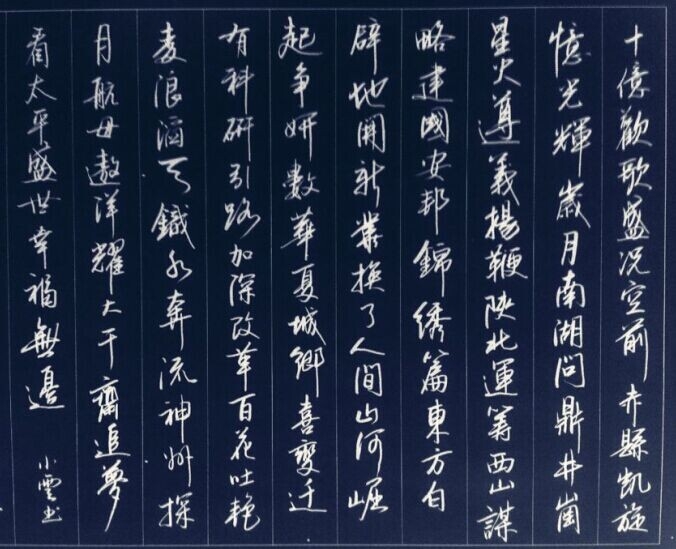 十億歡歌盛况空前赤縣凱旋
憶光輝歲月南湖問鼎井崗
星火遵義揚鞭陝北運筹西山謀
略建國安邦錦綉篇東方白
辟地開新業換了人間山河崛
起争妍數華夏城鄉喜變迁
有科研引路加深改革百花吐艳
麦浪滔天鐵水奔流神州探
月航母遨洋耀大千齊追夢
看太平盛世幸福無邊
小雲书